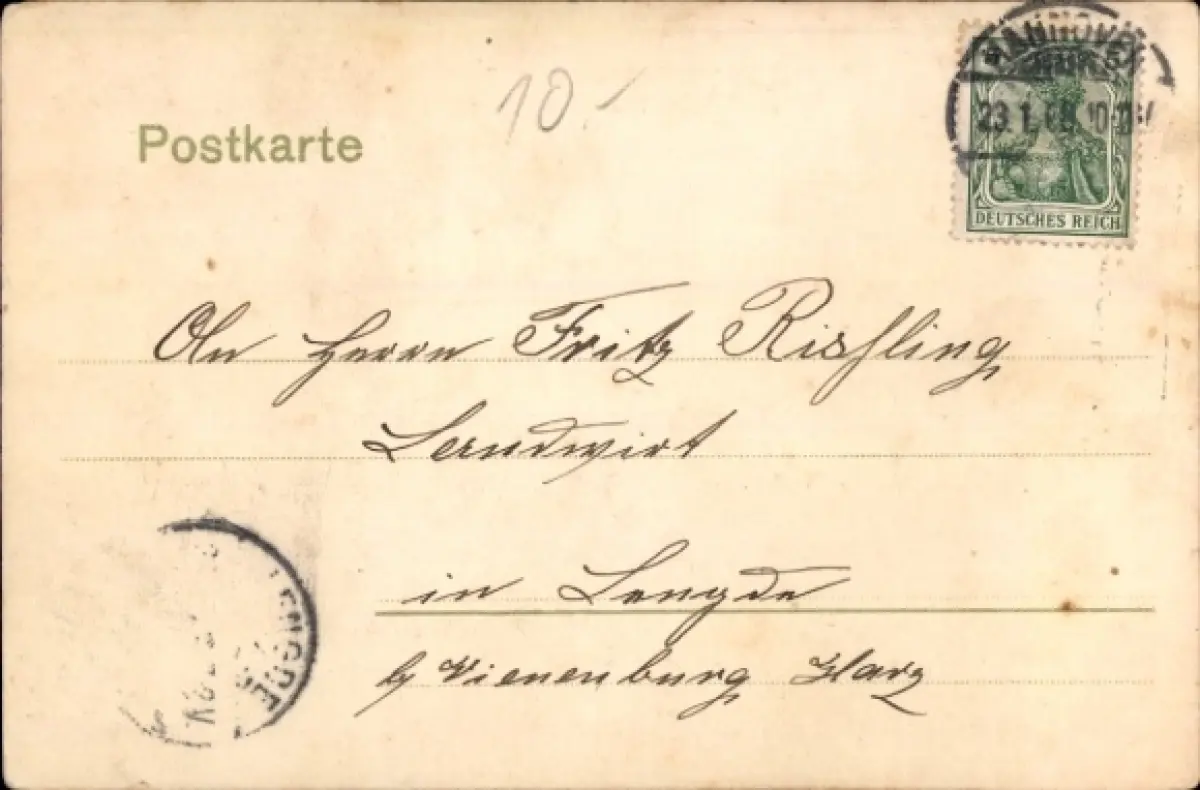 10.-
Postkarte
HANNOVER
23.1.
DEUTSCHES REICH
An Herrn Fritz Rißling
Landwirt
in Lengde
b/ Vienenburg Harz
LENGDE